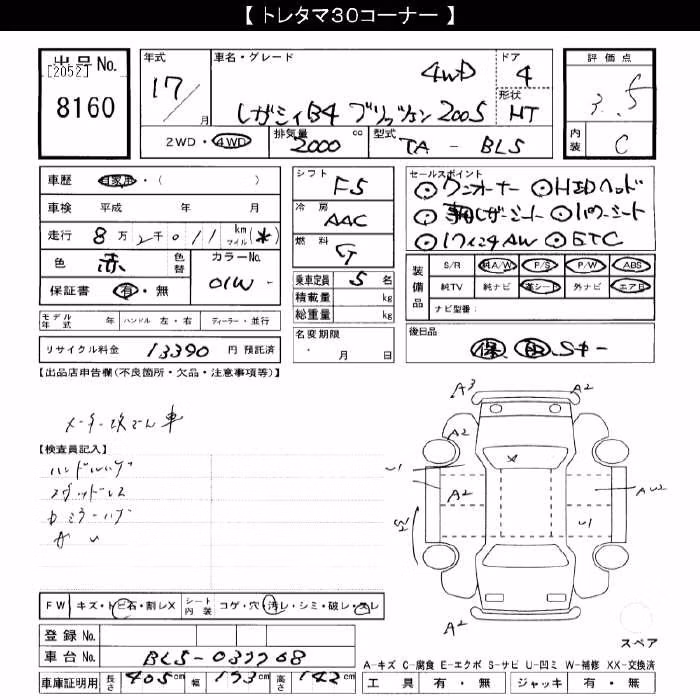 【 トレタマ30コーナー 】
出品No. [2052] 8160
年式 17/ 月
車名・グレード 4WD
レガシィB4 ブリッツェン2005
ドア 4
形状 HT
評価点 3.5
内装 C
2WD・4WD 排気量 2000 cc 型式 TA - BL5
車歴 自家用・( )
車検 平成 年 月
走行 8万2千011 km マイル (*)
色 赤 色替 カラーNo. 01W -
保証書 有・無
モデル年式 年 ハンドル 左・右 ディーラー・並行
リサイクル料金 13390 円 預託済
シフト F5
冷房 AAC
燃料 G
乗車定員 5 名
積載量 kg
総重量 kg
名変期限 ・ 月 日
セールスポイント
◎ワンオーナー ◎HIDヘッド
◎専用レザーシート ◎パワーシート
◎17インチAW ◎ETC
装備品 S/R 純A/W P/S P/W ABS
純TV 純ナビ 革シート 外ナビ エアB
ナビ型番:
後日品
保 取 Sキー
【出品店申告欄(不良箇所・欠品・注意事項等)】
メーター改ざん車
【検査員記入】
ハンドルハゲ
FW キズ・ト(ビ)石・割レX シート内装 コゲ・穴・汚レ・シミ・破レ・スレ
登録No.
車台No. BL5-037708
車庫証明用 長さ 465cm 幅 173cm 高さ 142cm
A3 A2
A2 A2
U1 A2 AW2
W2 U1
A2 A2
スペア
A-キズ C-腐食 E-エクボ S-サビ U-凹ミ W-補修 XX-交換済
工具 有・無 ジャッキ 有・無